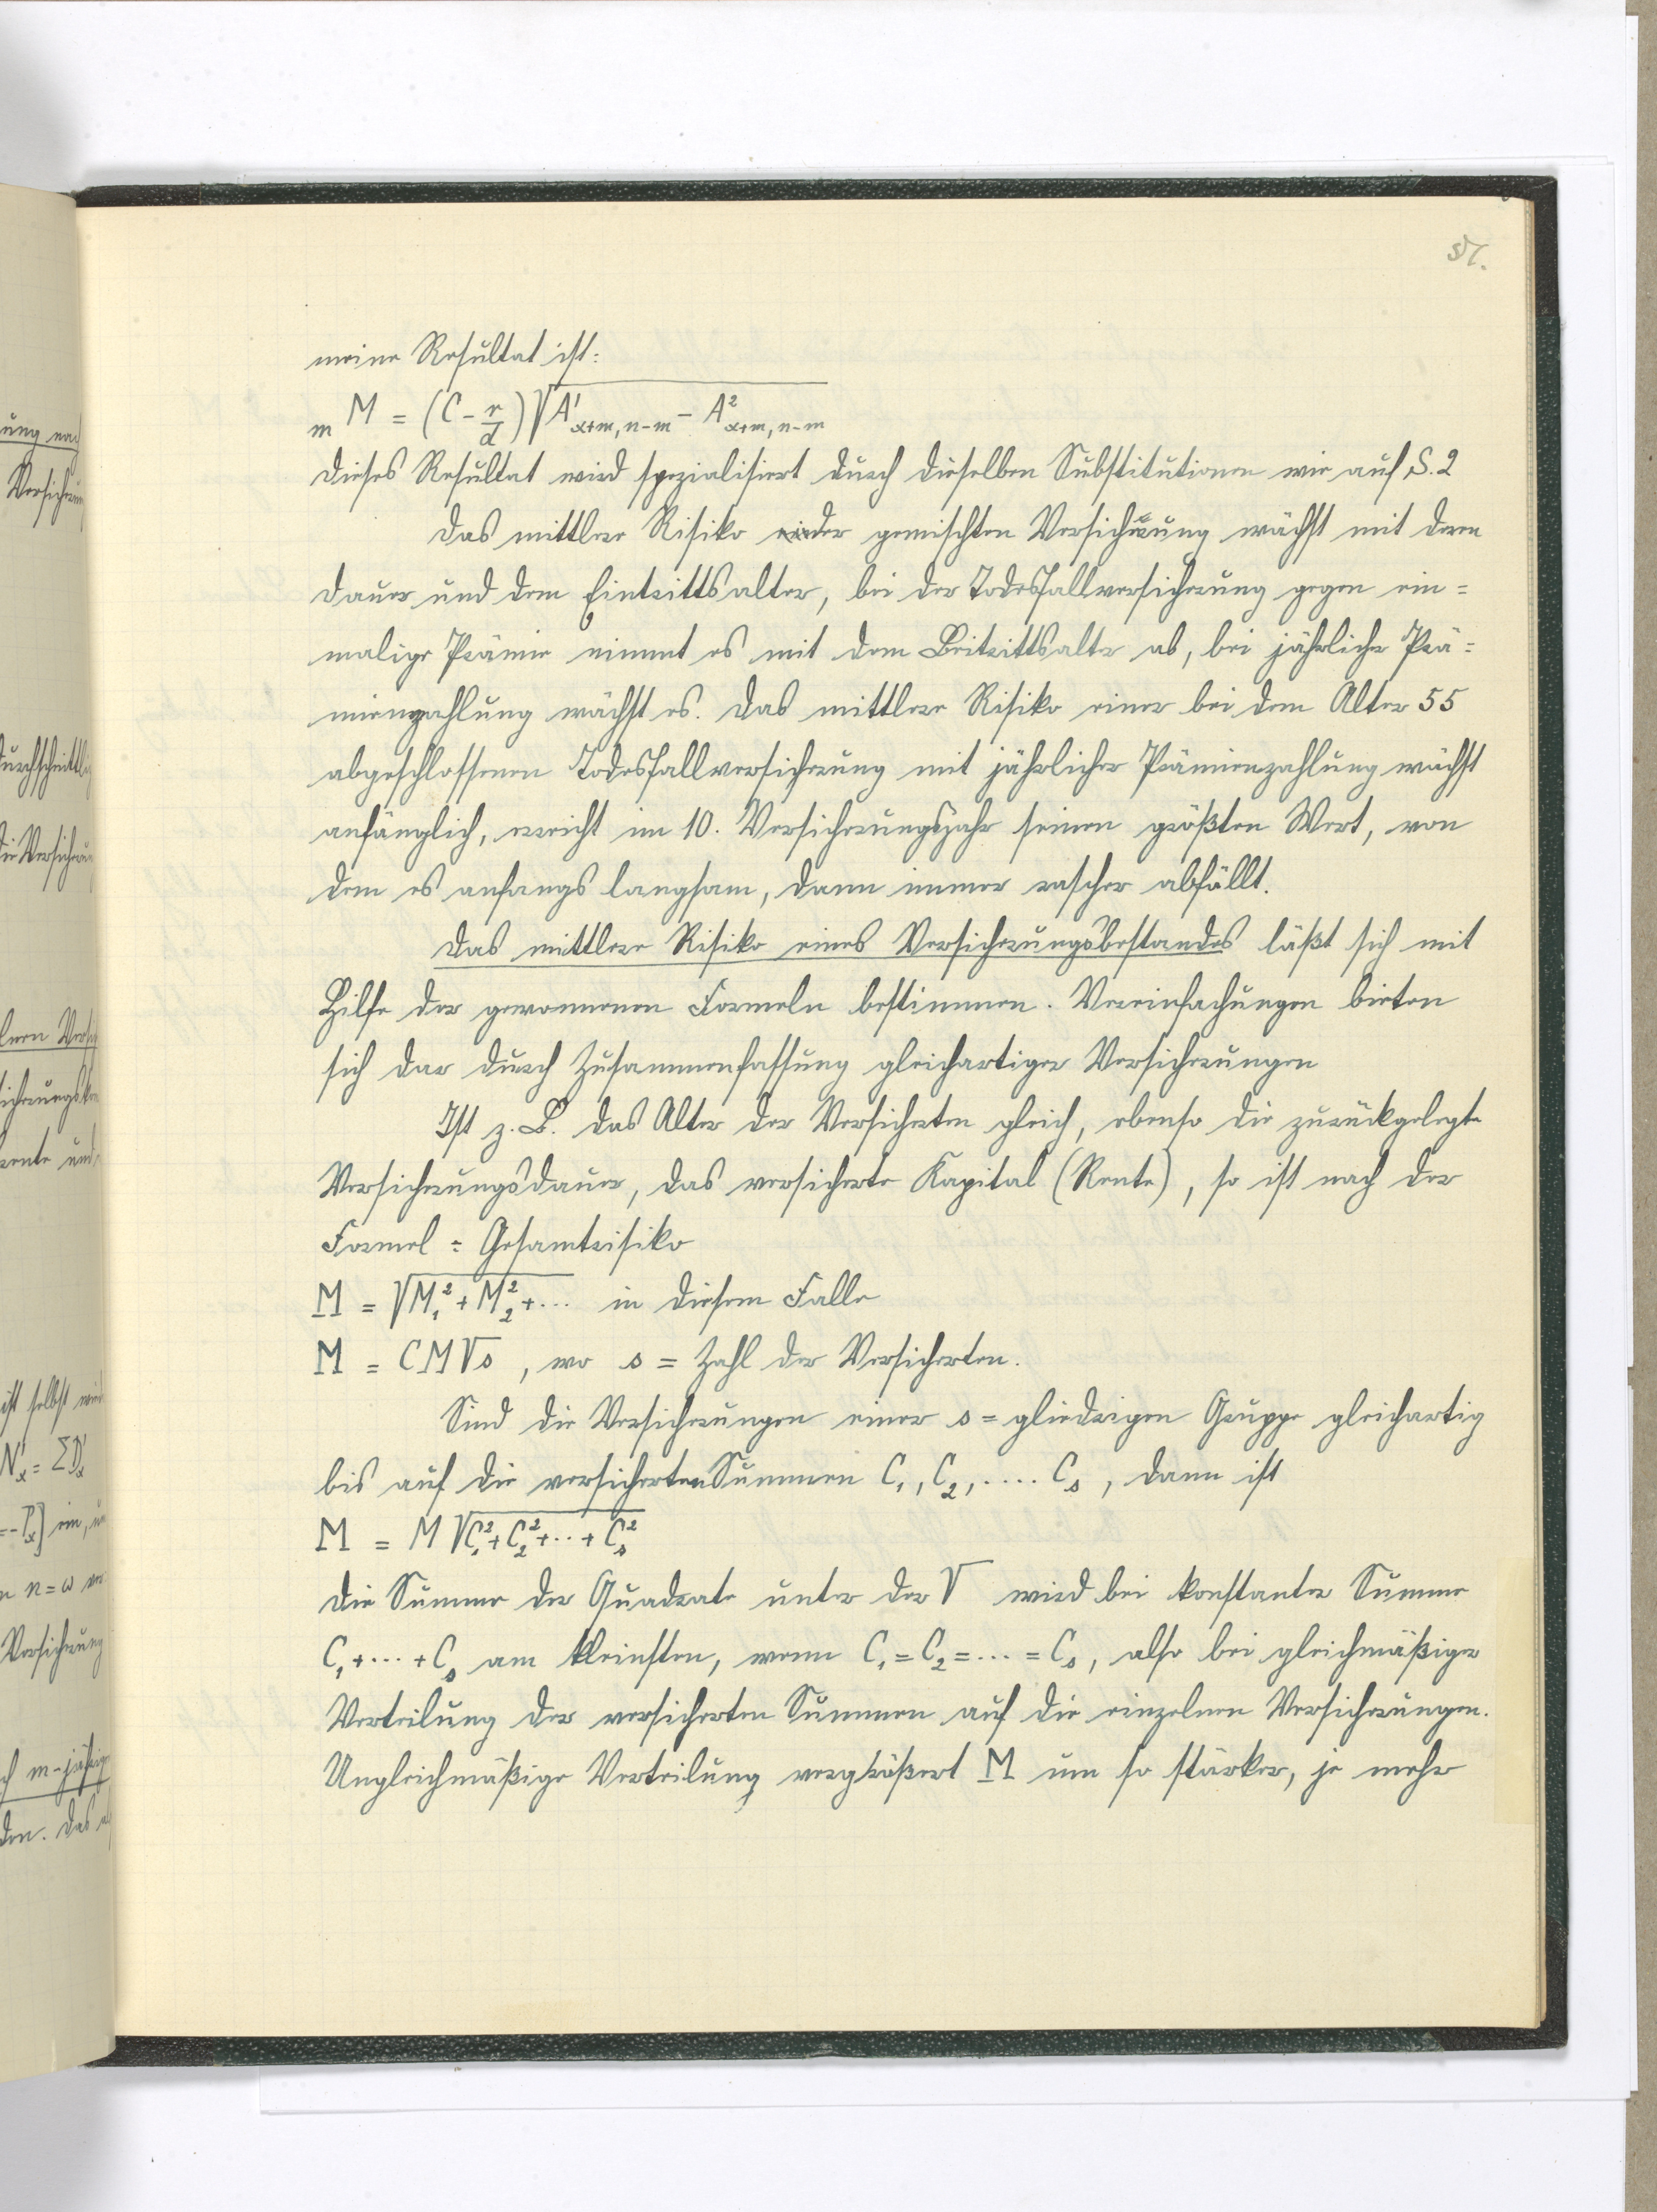 51.
meine Resultat ist:
m M = (C - r/d) √A'x+m, n-m - A²x+m, n-m
Dieses Resultat wird spezialisiert durch dieselben Substitutionen wie auf S. 2
Das mittlere Risiko der gemischten Versicherung wächst mit deren
Dauer und dem Eintrittsalter, bei der Todesfallversicherung gegen ein=
malige Prämie nimmt es mit dem Beitrittsalter ab, bei jährlicher Prä=
mienzahlung wächst es. Das mittlere Risiko einer bei dem Alter 55
abgeschlossenen Todesfallversicherung mit jährlicher Prämienzahlung wächst
anfänglich, erreicht im 10. Versicherungsjahr seinen größten Wert, von
dem es anfangs langsam, dann immer rascher abfällt.
Das mittlere Risiko eines Versicherungsbestandes läßt sich mit
Hilfe der gewonnenen Formeln bestimmen. Vereinfachungen bieten
sich dar durch Zusammenfassung gleichartiger Versicherungen
Ist z. B. das Alter der Versicherten gleich, ebenso die zurückgelegte
Versicherungsdauer, das versicherte Kapital (Rente), so ist nach der
Formel = Gesamtrisiko
M = √M₁² + M₂² + ... in diesem Falle
M = CM√s, wo s = Zahl der Versicherten.
Sind die Versicherungen einer s = gliedrigen Gruppe gleichartig
bis auf die versicherten Summen C₁, C₂, .... Cₛ, dann ist
M = M √C₁² + C₂² + ... + Cₛ²
Die Summe der Quadrate unter der √ wird bei konstanter Summe
C₁ + ... + Cₛ am kleinsten, wenn C₁ = C₂ = ... = Cₛ, also bei gleichmäßiger
Verteilung der versicherten Summen auf die einzelnen Versicherungen.
Ungleichmäßige Verteilung vergrößert M um so stärker, je mehr